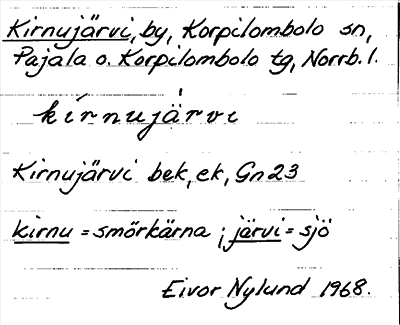 Kirnujärvi, by, Korpilombolo sn,
Pajala o. Korpilombolo tg, Norrb. l.
kírnujä́rvi
Kirnujärvi bek, ek, Gn23
kirnu = smörkärna ; järvi = sjö
Eivor Nylund 1968.